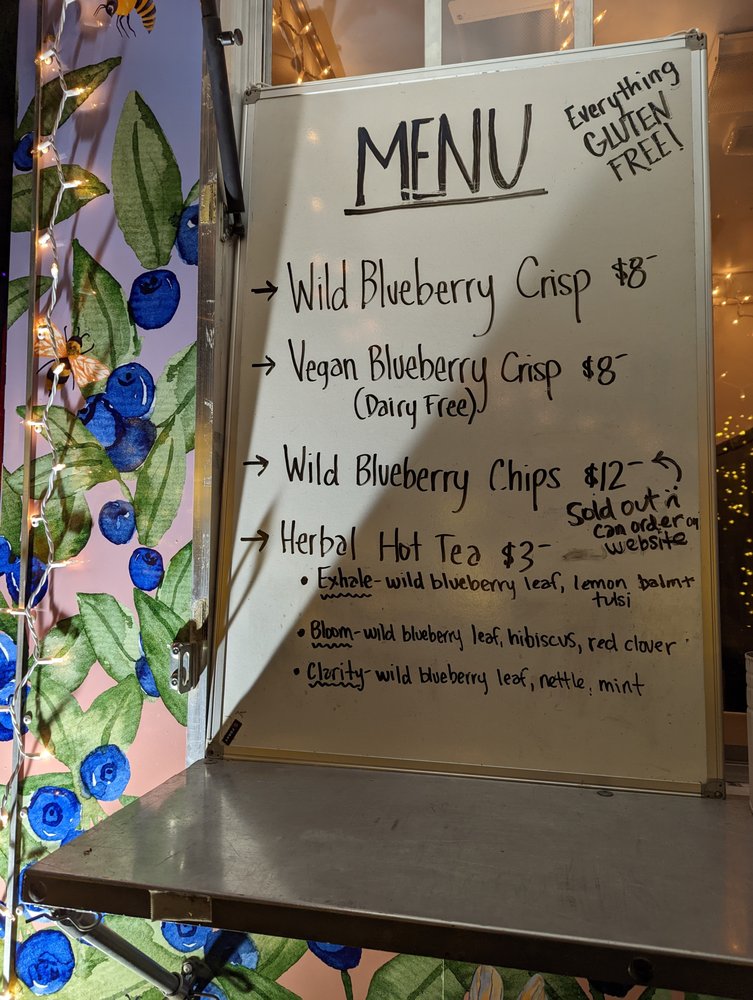 Everything
GLUTEN
FREE!
MENU
→ Wild Blueberry Crisp $8-
→ Vegan Blueberry Crisp $8-
(Dairy Free)
→ Wild Blueberry Chips $12-
Sold out
can order on
website
→ Herbal Hot Tea $3-
• Exhale- wild blueberry leaf, lemon balm +
tulsi
• Bloom- wild blueberry leaf, hibiscus, red clover
• Clarity- wild blueberry leaf, nettle, mint